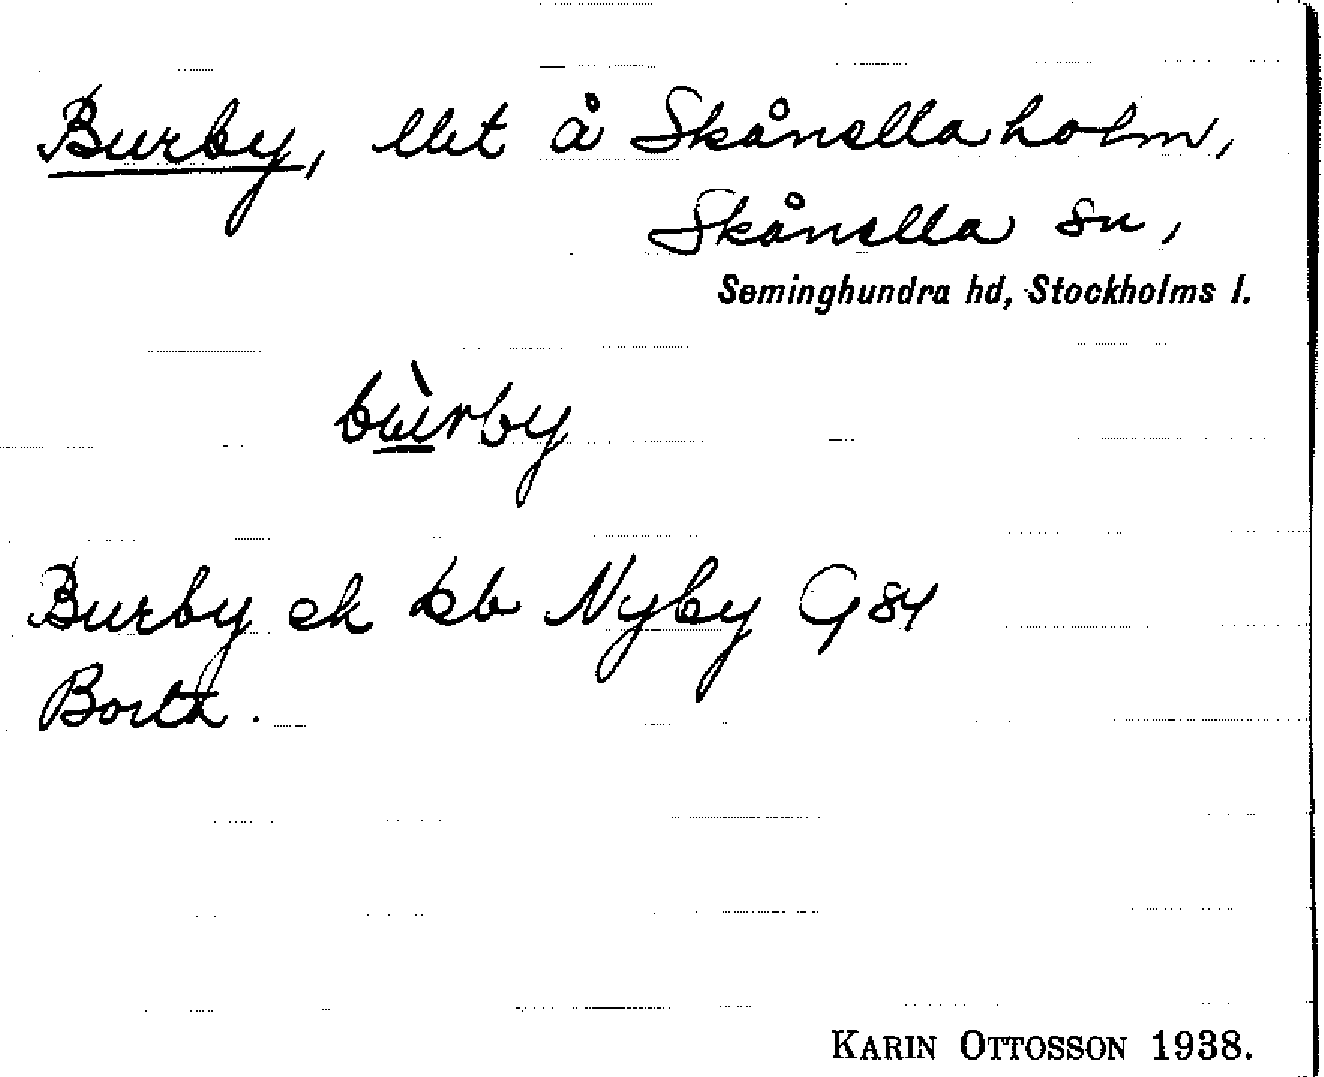 Burby, llt å Skånellaholm,
Skånella sn,
Seminghundra hd, Stockholms l.
bùrby
Burby ek kb Nyby G 84
Borta.
KARIN OTTOSSON 1938.